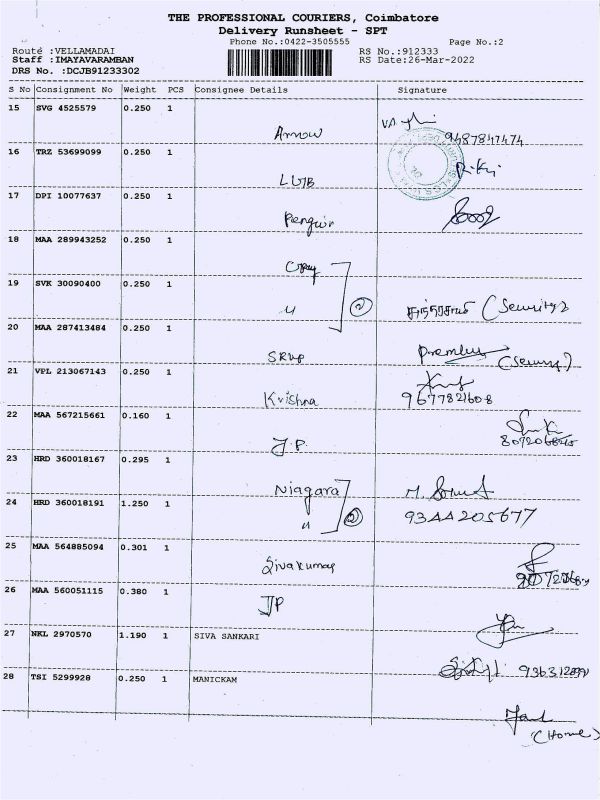 THE PROFESSIONAL COURIERS, Coimbatore
Delivery Runsheet - SPT
Phone No.:0422-3505555 Page No.:2
Route :VELLAMADAI RS No.:912333
Staff :IMAYAVARAMBAN RS Date:26-Mar-2022
DRS No. :DCJB91233302
S No Consignment No Weight PCS Consignee Details Signature
15 SVG 4525579 0.250 1
Arrow 9487847474
16 TRZ 53699099 0.250 1
LUIB
17 DPI 10077637 0.250 1
Penguin
18 MAA 289943252 0.250 1
19 SVK 30090400 0.250 1
② (Security)
20 MAA 287413484 0.250 1
SRVP
21 VPL 213067143 0.250 1
Krishna 9677821608
22 MAA 567215661 0.160 1
J.P.
23 HRD 360018167 0.295 1
Niagara
24 HRD 360018191 1.250 1
② 9344205677
25 MAA 564885094 0.301 1
Sivakumar
26 MAA 560051115 0.380 1
JP
27 NKL 2970570 1.190 1 SIVA SANKARI
28 TSI 5299928 0.250 1 MANICKAM
(Home)